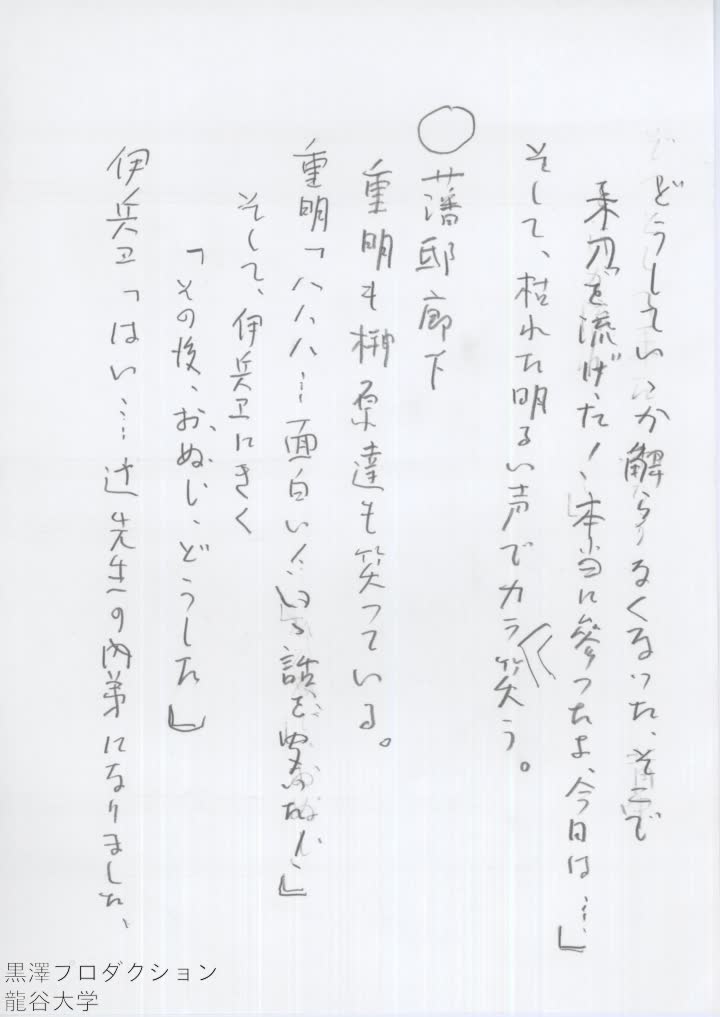 どうしていゝか解らなくなった、そこで
釆刀を流げた！本当に參ったよ、今日は…」
そして、枯れた明るい声でカラ〱笑う。
○藩邸廊下
重明も榊原達も笑っている。
重明「ハハハ…面白い〱いゝ話を聞いた〱」
そして、伊兵ヱにきく
「その後、おぬし、どうした」
伊兵ヱ「はい…辻先生の内弟になりました、
黒澤プロダクション
龍谷大学